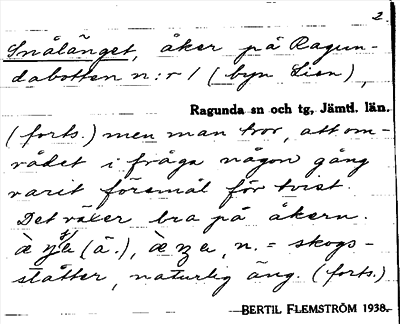 2.
Snålänget, åker på Ragun-
dabotten n:r 1 (byn Lien),
Ragunda sn och tg, Jämtl. län.
(forts.) men man tror, att om-
rådet i fråga någon gång
varit föremål för tvist.
Det växer bra på åkern.
(ä.), n. = skogs-
slåtter, naturlig äng. (forts.)
BERTIL FLEMSTRÖM 1938.